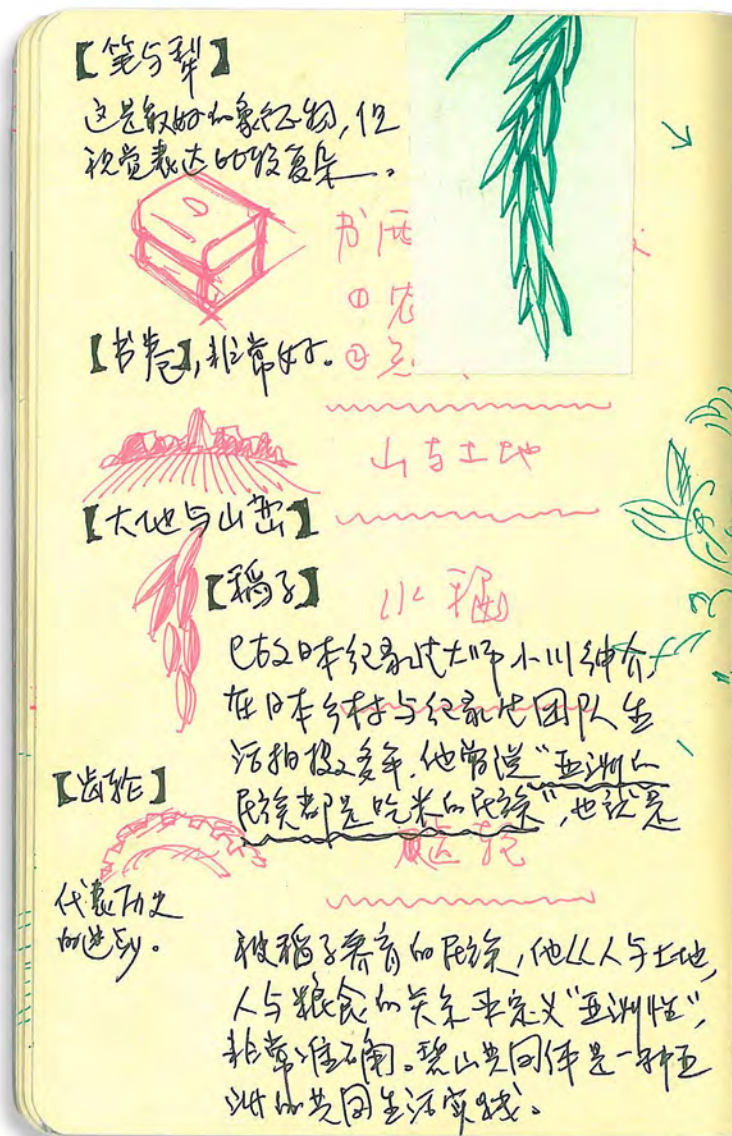 【笔与犁】
这是最好的象征物,但
视觉表达比较复杂。
书
① 农
②
【书卷】,非常好。
山与土地
【大地与山峦】
【稻子】
水稻
已故日本纪录片大师小川绅介,
在日本乡村与纪录片团队生
活拍摄多年,他常说“亚洲的
【齿轮】
民族都是吃米的民族”,也就是
齿轮
代表历史
的进步。
被稻子养育的民族,他从人与土地,
人与粮食的关系来定义“亚洲性”,
非常准确。碧山共同体是一种亚
洲的共同生活实践。